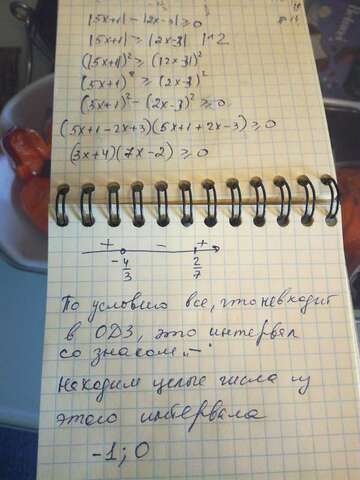 |5x+1| - |2x-3| ≥ 0
|5x+1| ≥ |2x-3| |^2
(|5x+1|)² ≥ (|2x-3|)²
(5x+1)² ≥ (2x-3)²
(5x+1)² - (2x-3)² ≥ 0
(5x+1-2x+3)(5x+1+2x-3) ≥ 0
(3x+4)(7x-2) ≥ 0
+ - +
-4/3 2/7
По условию все, что не входит
в ОДЗ, это интервал
со знаком „-"
Находим целые числа из
этого интервала
-1; 0